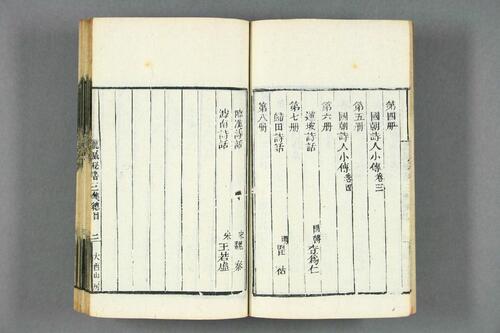 第四册
國朝詩人小傳卷三
第五册
國朝詩人小傳卷四
第六册
蓮坡詩話 國朝 查為仁
第七册
歸田詩話 明 瞿佑
第八册
臨漢詩話 宋 魏泰
滹南詩話 宋 王若虛
龍威秘書三集總目 三 大酉山房